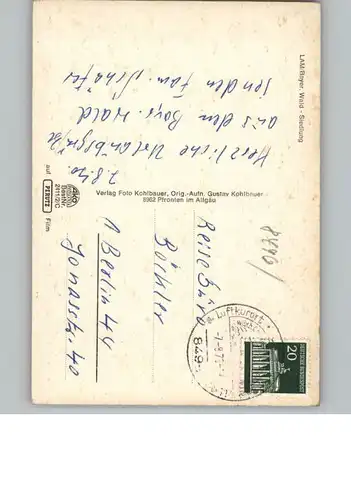 LAM/Bayer. Wald - Siedlung
7.8.70.
Herzliche Urlaubsgrüße
aus dem Bayr. Wald
senden Fam. Schäfer
Verlag Foto Kohlbauer, Orig.-Aufn. Gustav Kohlbauer
8962 Pfronten im Allgäu
auf PERUTZ Film
Reisebüro
Bächler
1 Berlin 44
Jonasstr. 40
Luftkurort
849
-7.-8.7
20
DEUTSCHE BUNDESPOST